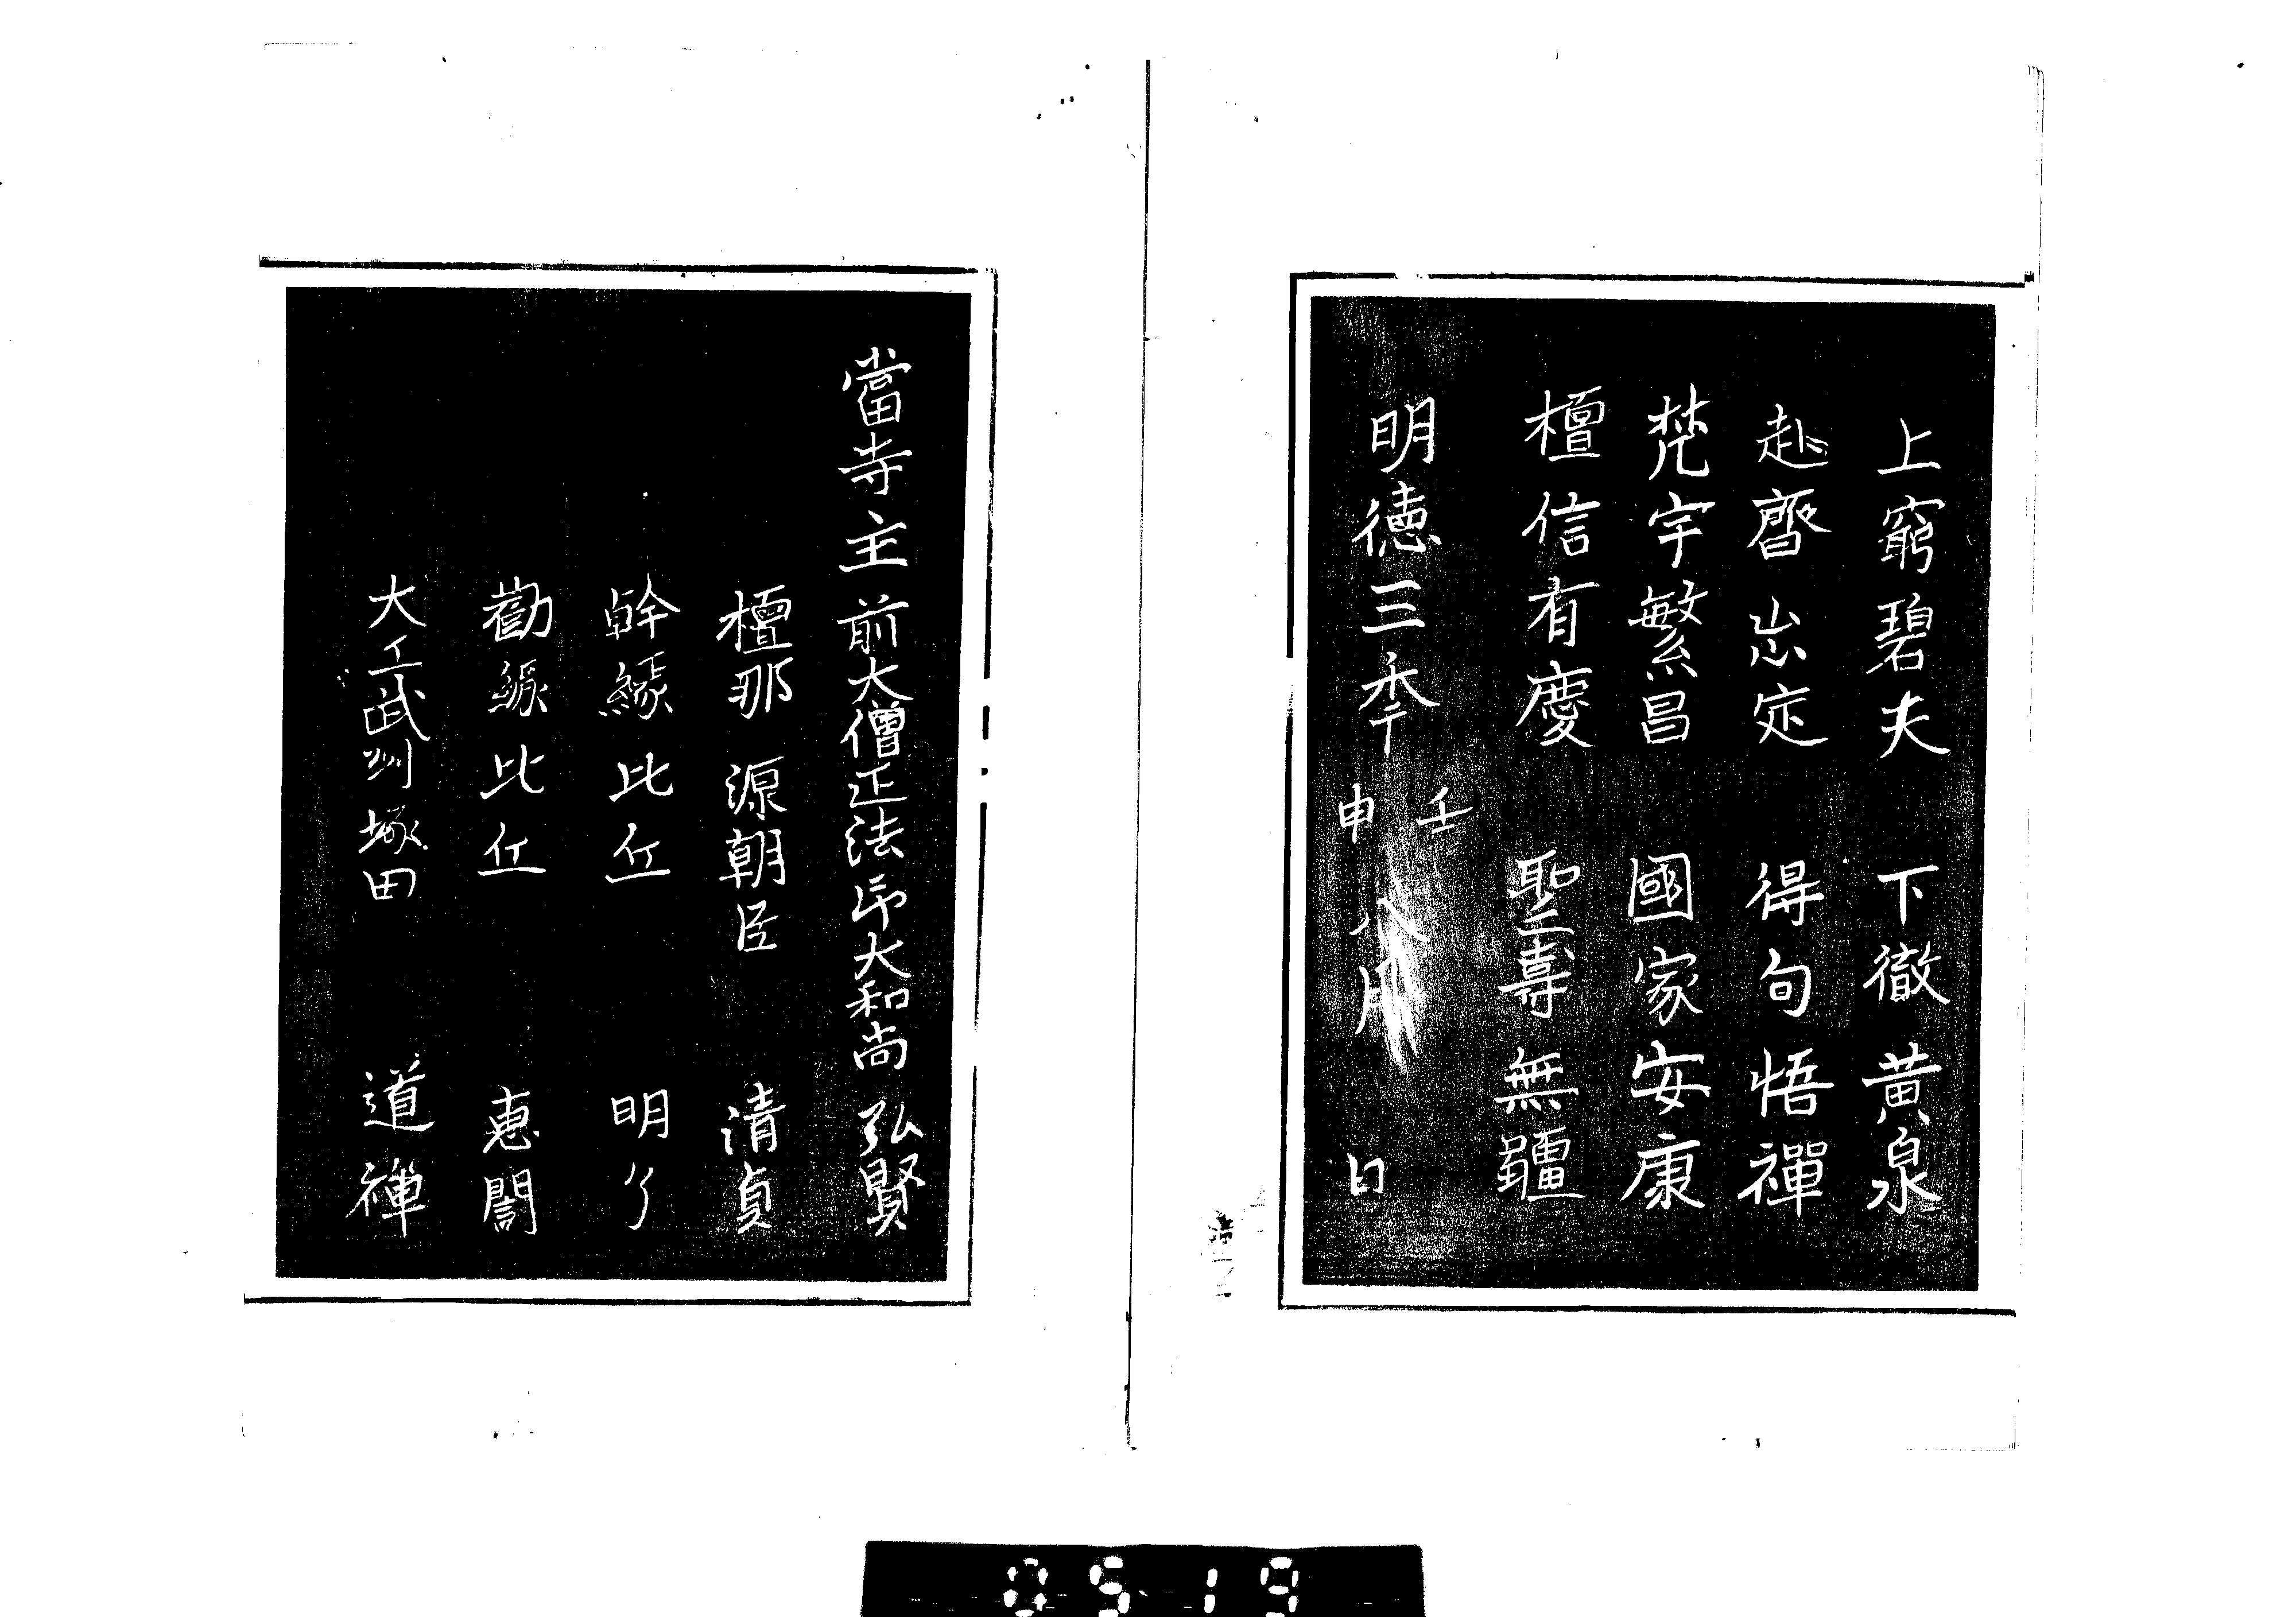 上窮碧夫 下徹黄泉
赴齋出定 得句悟禪
梵宇繁昌 國家安康
檀信有慶 聖壽無疆
明德三季壬申八月 日
當寺主前大僧正法印大和尚弘賢
檀那 源朝臣 清貞
幹縁比丘 明了
勸縁比丘 惠誾
大工武州塚田 道禪
0519